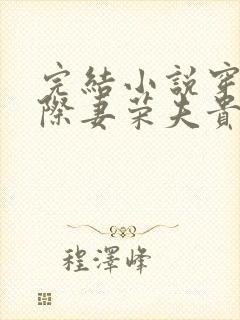 完結小說穿
際妻荣夫貴
程澤峰